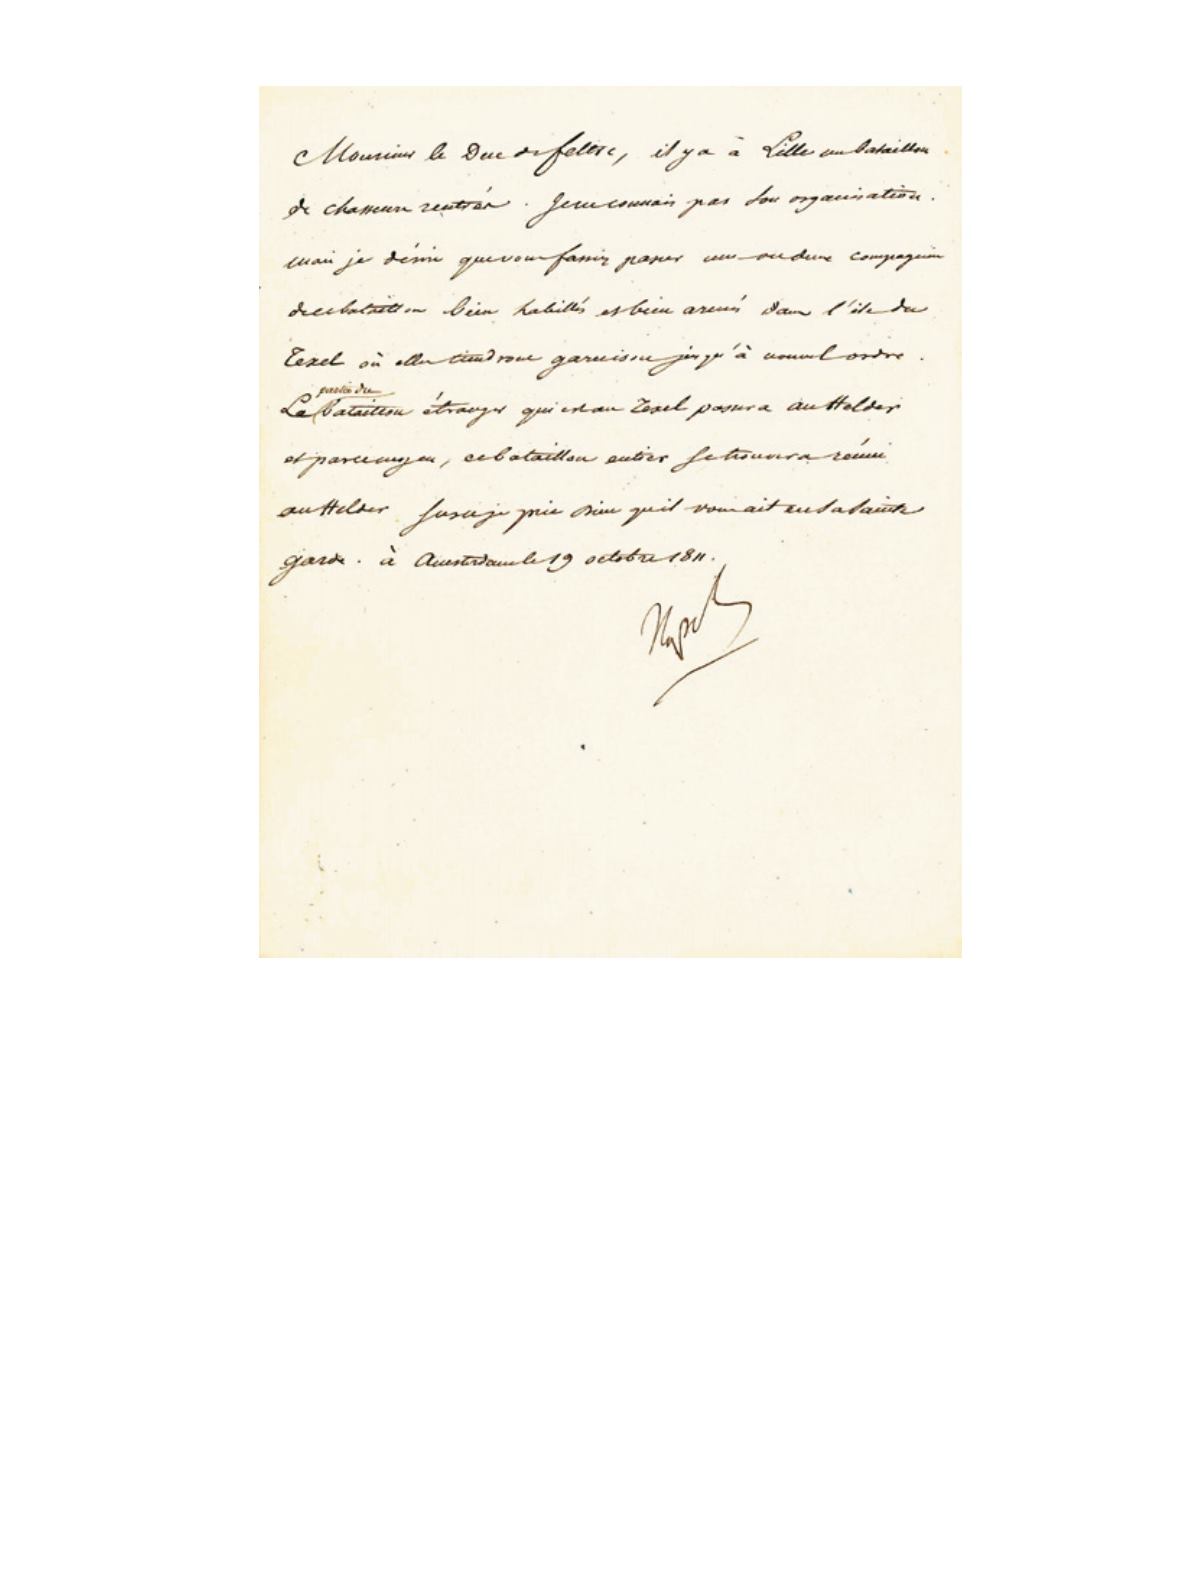 Monsieur le Duc de feltre, il y a à Lille un bataillon
de chasseurs rentrés. Je ne connais pas son organisation.
mais je désire que vous fassiez passer une ou deux compagnies
de ce bataillon bien habillés et bien armés dans l'ile du
Texel où elles tiendront garnison jusqu'à nouvel ordre.
partie du
Le bataillon étranger qui est au Texel passera au Helder
et par ce moyen, ce bataillon entier se trouvera réuni
au Helder Sur ce je prie Dieu qu'il vous ait en sa sainte
garde. à Amsterdam le 19 octobre 1811.
Napol